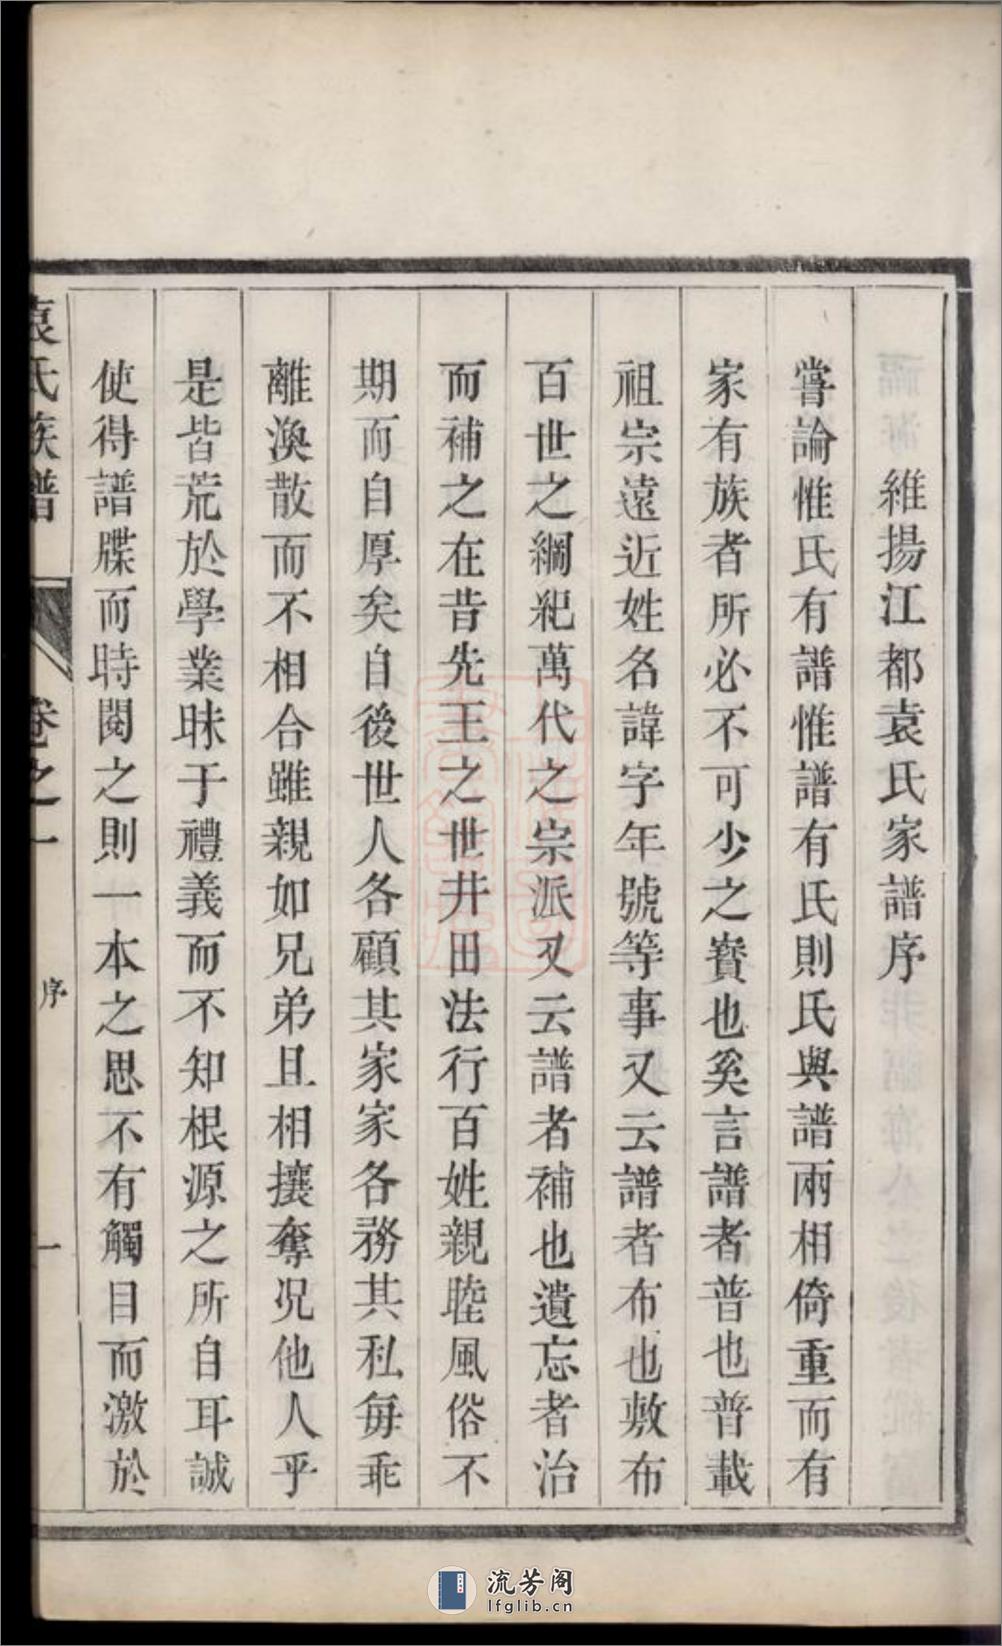 維揚江都袁氏家譜序
嘗論惟氏有譜惟譜有氏則氏與譜兩相倚重而有
家有族者所必不可少之寶也奚言譜者普也普載
祖宗遠近姓名諱字年號等事又云譜者布也敷布
百世之綱紀萬代之宗派又云譜者補也遺忘者治
而補之在昔先王之世井田法行百姓親睦風俗不
期而自厚矣自後世人各顧其家家各務其私每乖
離渙散而不相合雖親如兄弟且相攘奪况他人乎
是皆荒於學業昧于禮義而不知根源之所自耳誠
使得譜牒而時閱之則一本之思不有觸目而激於
袁氏族譜 卷之一 序 一
流芳阁
lfglib.cn